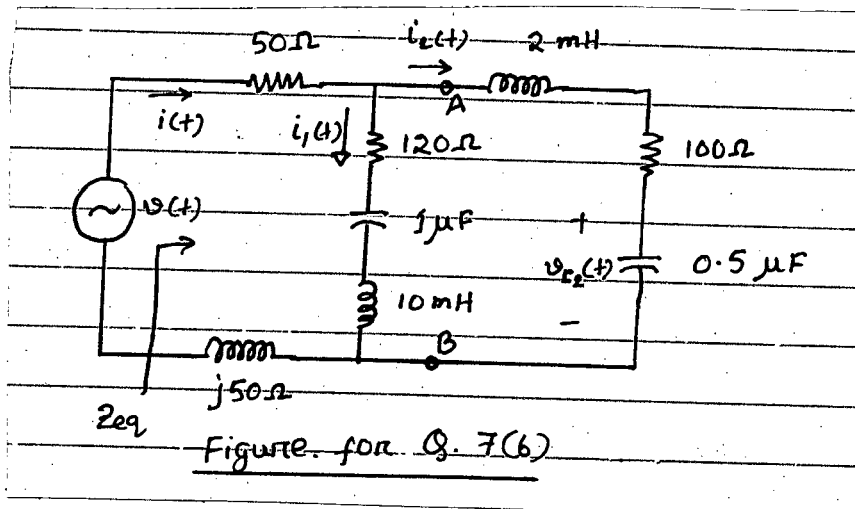 50Ω
i₂(t)
2 mH
A
i(t)
i₁(t)
120Ω
100Ω
v(t)
1μF
+
v꜀₂(t)
0.5 μF
10mH
−
B
j50Ω
Zeq
Figure. for Q. 7(b)